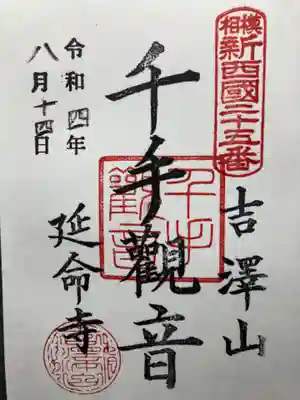 相模
新西國二十五番
吉澤山
千手觀音
千手
觀音
延命寺
令和四年
八月十四日